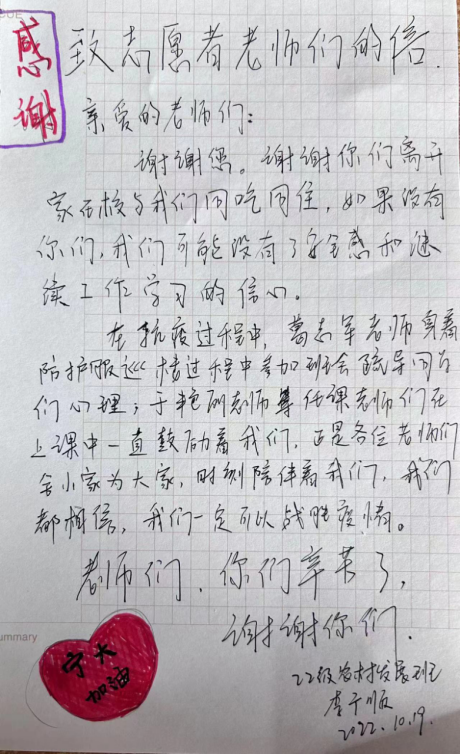 感谢
致志愿者老师们的信.
亲爱的老师们:
谢谢您。谢谢你们离开
家在校与我们同吃同住,如果没有
你们,我们可能没有了安全感和继
续工作学习的信心。
在抗疫过程中,葛志军老师穿着
防护服巡楼过程中参加班会疏导同学
们心理;于艳丽老师等任课老师们在
上课中一直鼓励着我们,正是各位老师们
舍小家为大家,时刻陪伴着我们,我们
都相信,我们一定可以战胜疫情。
老师们,你们辛苦了,
谢谢你们.
22级农村发展班
李
2022.10.19.
ummary
宁大
加油